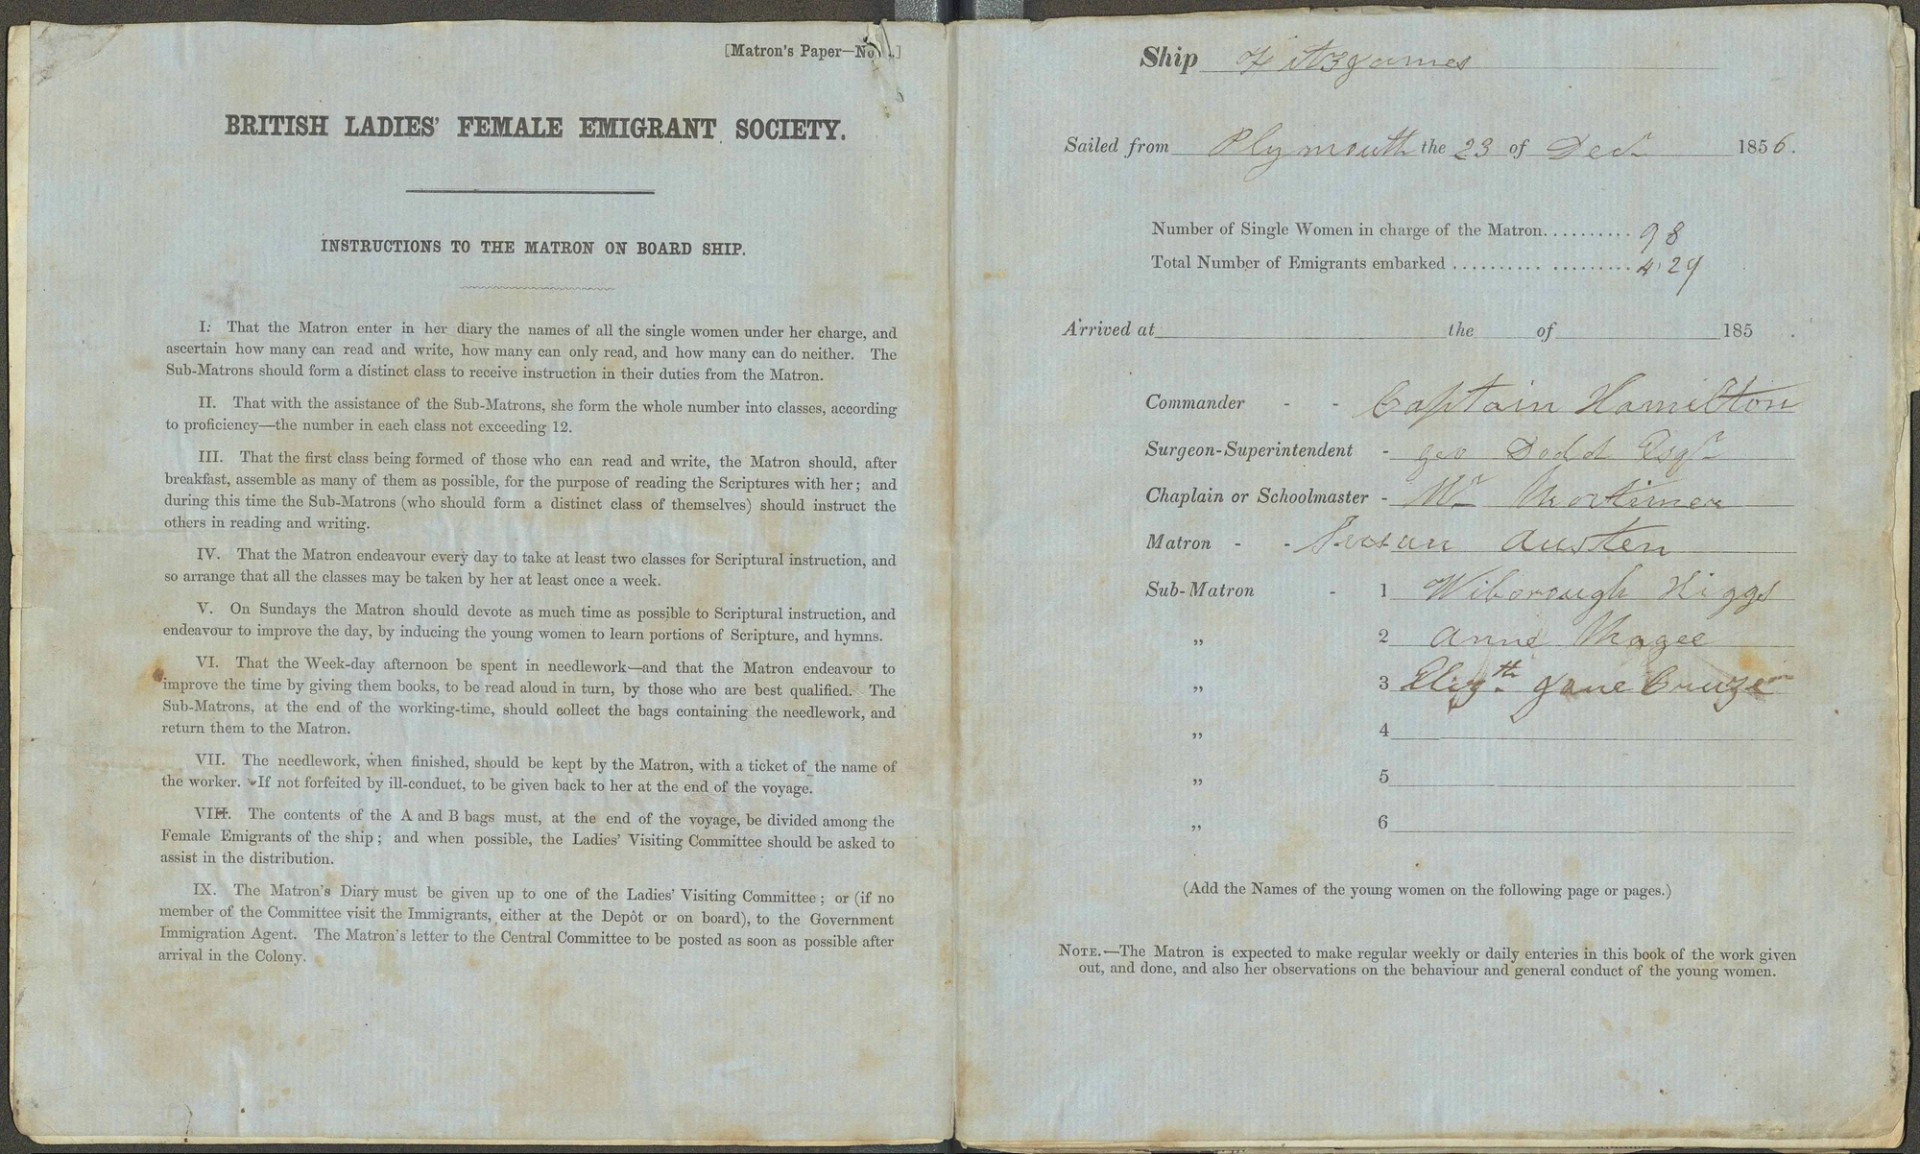 [Matron's Paper—No
BRITISH LADIES' FEMALE EMIGRANT SOCIETY.
INSTRUCTIONS TO THE MATRON ON BOARD SHIP.
I. That the Matron enter in her diary the names of all the single women under her charge, and
ascertain how many can read and write, how many can only read, and how many can do neither. The
Sub-Matrons should form a distinct class to receive instruction in their duties from the Matron.
II. That with the assistance of the Sub-Matrons, she form the whole number into classes, according
to proficiency—the number in each class not exceeding 12.
III. That the first class being formed of those who can read and write, the Matron should, after
breakfast, assemble as many of them as possible, for the purpose of reading the Scriptures with her; and
during this time the Sub-Matrons (who should form a distinct class of themselves) should instruct the
others in reading and writing.
IV. That the Matron endeavour every day to take at least two classes for Scriptural instruction, and
so arrange that all the classes may be taken by her at least once a week.
V. On Sundays the Matron should devote as much time as possible to Scriptural instruction, and
endeavour to improve the day, by inducing the young women to learn portions of Scripture, and hymns.
VI. That the Week-day afternoon be spent in needlework—and that the Matron endeavour to
improve the time by giving them books, to be read aloud in turn, by those who are best qualified. The
Sub-Matrons, at the end of the working-time, should collect the bags containing the needlework, and
return them to the Matron.
VII. The needlework, when finished, should be kept by the Matron, with a ticket of the name of
the worker. If not forfeited by ill-conduct, to be given back to her at the end of the voyage.
VIII. The contents of the A and B bags must, at the end of the voyage, be divided among the
Female Emigrants of the ship; and when possible, the Ladies' Visiting Committee should be asked to
assist in the distribution.
IX. The Matron's Diary must be given up to one of the Ladies' Visiting Committee; or (if no
member of the Committee visit the Immigrants, either at the Depôt or on board), to the Government
Immigration Agent. The Matron's letter to the Central Committee to be posted as soon as possible after
arrival in the Colony.
Ship Fitzjames
Sailed from Plymouth the 23 of Decr 1856.
Number of Single Women in charge of the Matron.......... 98
Total Number of Emigrants embarked .................... 429
Arrived at the of 185 .
Commander - - Captain Hamilton
Surgeon-Superintendent - geo Dodd Esqr
Chaplain or Schoolmaster - Mr Mortimer
Matron - - Susan Austen
Sub-Matron - 1 Wiborough Higgs
,, 2 Anne Magee
,, 3 Elizth. Jane
,, 4
,, 5
,, 6
(Add the Names of the young women on the following page or pages.)
NOTE.—The Matron is expected to make regular weekly or daily entries in this book of the work given
out, and done, and also her observations on the behaviour and general conduct of the young women.